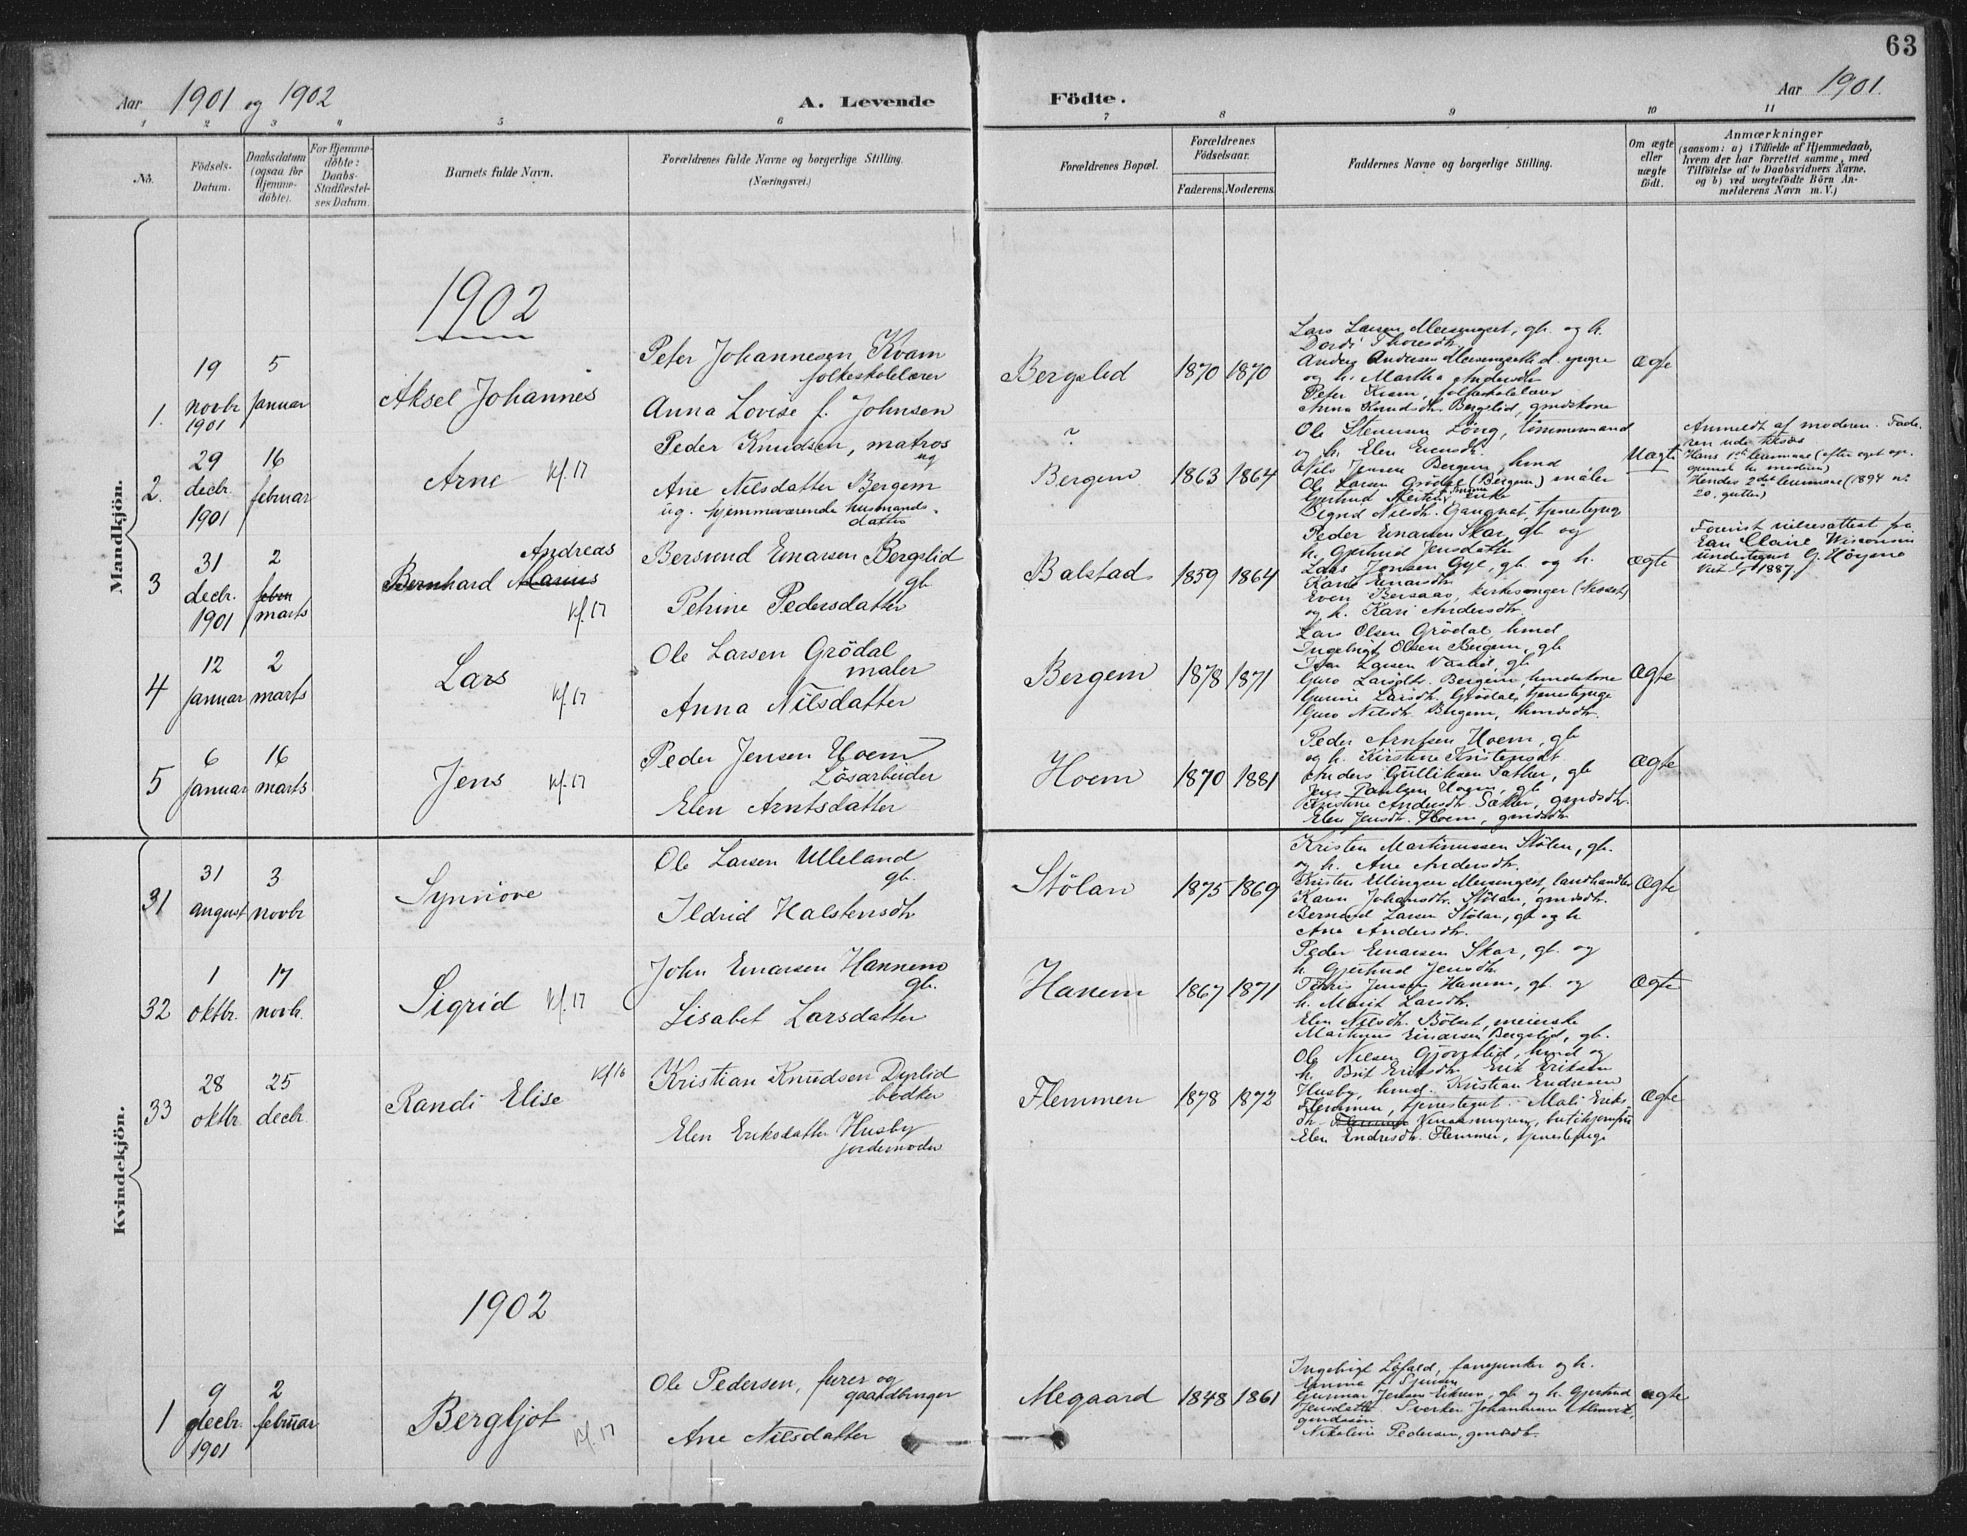 63
Aar 1901 og 1902
A. Levende Födte.
Aar 1901.
1 2 3 4 5 6 7 8 9 10 11
No.
Födsels-Datum.
Daabsdatum (ogsaa for Hjemme-döbte).
For Hjemme-döbte: Daabs-Stadfæstel-ses Datum.
Barnets fulde Navn.
Forældrenes fulde Navne og borgerlige Stilling.
(Næringsvei.)
Forældrenes Bopæl.
Forældrenes Födselsaar.
Faderens. Moderens.
Faddernes Navne og borgerlige Stilling.
Om ægte eller uægte födt.
Anmærkninger
(saasom: a) i Tilfælde af Hjemmedaab, hvem der har forrettet samme, med Tilföielse af to Daabsvidners Navne, og b) ved uægtefödte Börn An-melderens Navn m. V.)
Mandkjön.
1902
1. 19 novbr 1901
5 januar
Aksel Johannes
Peter Johannesen Kvam
folkeskolelærer
Anna Lovise f. Johnsen
Bergslid
1870 1870
Lars Larsen Meisingset, gb. og h.
Dordi Thoresdtr.
Anders Andersen Meisingseth d. yngre
og h. Martha Andersdtr
Peter Kvam, folkeskolelærer
Anna Knudsdtr. Bergslid, gmdskone
Ægte
2. 29 decbr. 1901
16 februar
Arne kf. 17
Peder Knudsen, matros
ug
Ane Nilsdatter Bergem
ug. hjemmeværende husmands-
datter
?
Bergem
1863 1864
Ole Stenersen Löng, tömmermand
og h. Elen Evensdtr.
Nils Jensen Bergem, hmd
Ole Larsen Grödal (Bergem) maler
Sigrid Nilsdtr. Gangnat, tjenestepige
Uægte
Anmeldt af moderen. Fade-
ren udenriks
Hans 1ste leiermaal (efter eget op-
Hendes 2det leiermaal (1894 no
20. gutten)
3 31 decbr. 1901
2 febru marts
Andreas
Bernhard Marius
kf. 17
Bersvend Einarsen Bergslid
gb.
Petrine Pedersdatter
Balstad
1859 1864
Peder Einarsen Skar, gb og
h. Gjertrud Jensdatter
Lars Jonsen Gyl, gb. og h.
Karit Einarsdtr.
Even Bersaas, kirkesanger (Nesset)
og h. Kari Andersdtr.
Ægte
Forevist vielsesattest fra
Eau Claire Wisconsin
undertegnet G. Höyme
4 12 januar
2 marts
Lars
kf. 17
Ole Larsen Grödal
maler
Anna Nilsdatter
Bergem
1878 1871
Lars Olsen Grödal, hmd
Ingebrigt Olsen Bergem, gb
Guro Larsdtr. Bergem, hmdskone
Gunine Larsdtr. Grödal, tjenestepige
Guro Nilsdtr. Bergem, hmdsdtr.
Ægte
5 6 januar
16 marts
Jens kf. 17
Peder Jensen Hoem
Lösarbeider
Elen Arntsdatter
Hoem
1870 1881
Peder Arntsen Hoem, gb
og h. Kirstine Kristensdt
Anders Gulliksen Sæther, gb
Jens Paulsen Hoem, gb
Kristine Andersdtr. Sæther, gmdsdtr.
Elen Jensdtr. Hoem, gmdsdtr
Ægte
Kvindekjön.
31 31 august
3 novbr
Synnöve
Ole Larsen Ulleland
gb.
Ildrid Halstensdtr
Stölan
1875 1869
Kristen Martinussen Stölen, gb.
og h. Ane Andersdtr.
Kristen Ellingsen Meisingset, landhandler
Karen Johansdtr. Stölan, gmdsdtr.
Bernard Larsen Stölan, gb og h
Ane Andersdtr.
Ægte
32 1 oktbr.
17 novbr.
Sigrid kf. 17
John Einarsen Hannem
gb.
Lisabet Larsdatter
Hanem
1867 1871
Peder Einarsen Skar, gb. og
h. Gjertrud Jensdtr.
Jensen Hanem, gb. og
h. Marit Larsdtr.
Elen Nilsdtr. Bölset, meierske
Martinus Einarsen Bergslid, gb.
Ægte
33 28 oktbr.
25 decbr.
Randi Elise
kf 16
Kristian Knudsen Dyrlid
bödker
Elen Eriksdatter Husby
jordemoder
Flemmen
1878 1872
Ole Nilsen Gjövetlid, hmd og
h. Brit Eriksdtr. Erik Eriksen
Husby, hmd. Kristian Endresen
Flemmen, tjenestegut. Mali Eriks-
Elen Endresdtr. Flemmen, tjenestepige
Ægte
1902
1 9 decbr. 1901
2 februar
Bergljot kf. 17
Ole Pedersen, furer og
gaardbruger
Ane Nilsdatter
Megaard
1848 1861
Ingebrigt Löfald, fanejunker og h.
Gunnar Jensen Eikrem, gb. og h. Gjertrud
Jensdatter Sverker Johannesen
gmdssön
Nikoline Pedersen, gmdsdtr.
ægte